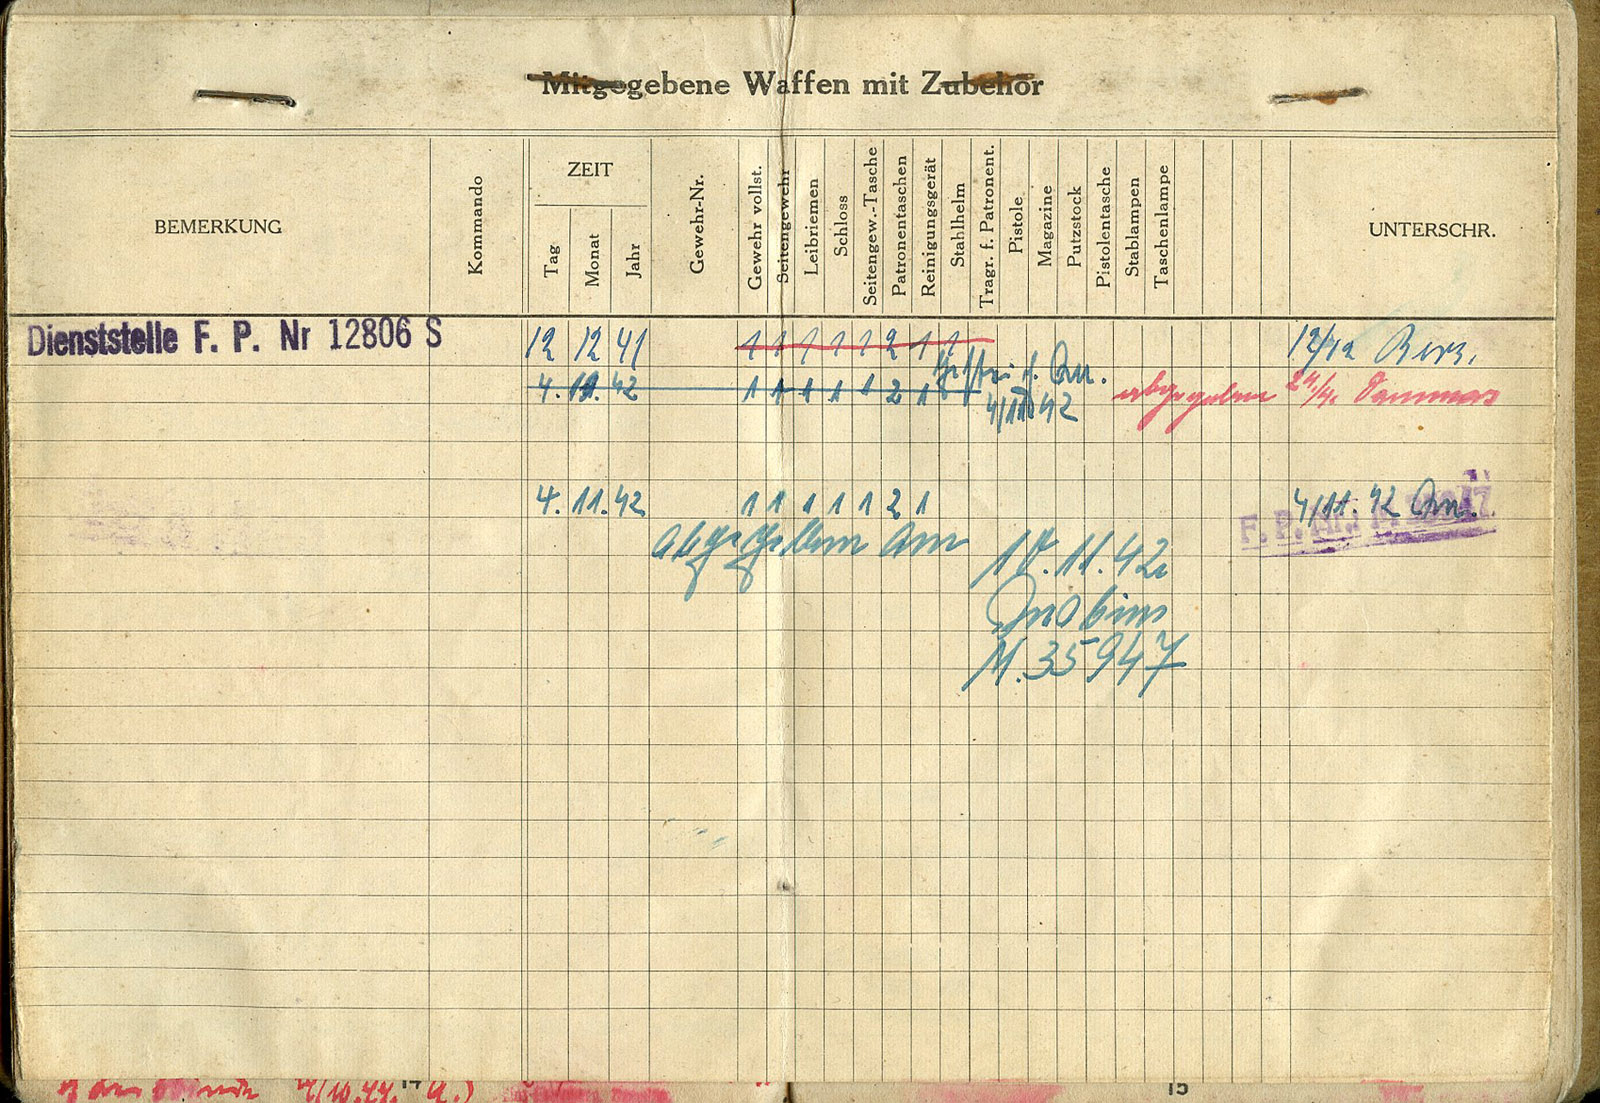 Mitgegebene Waffen mit Zubehör
BEMERKUNG
Kommando
ZEIT
Tag
Monat
Jahr
Gewehr-Nr.
Gewehr vollst.
Seitengewehr
Leibriemen
Schloss
Seitengew.-Tasche
Patronentaschen
Reinigungsgerät
Stahlhelm
Tragr. f. Patronent.
Pistole
Magazine
Putzstock
Pistolentasche
Stablampen
Taschenlampe
UNTERSCHR.
Dienststelle F. P. Nr 12806 S 12 12 41 1 1 1 1 1 2 1 1 12/12
4. 11. 42 1 1 1 1 1 2 1 abgegeben 24/4.
4/11 42
4. 11. 42 1 1 1 1 1 2 1 4/11. 42
F. P.
abgegeben am 10.11.42
M.35947
14
15